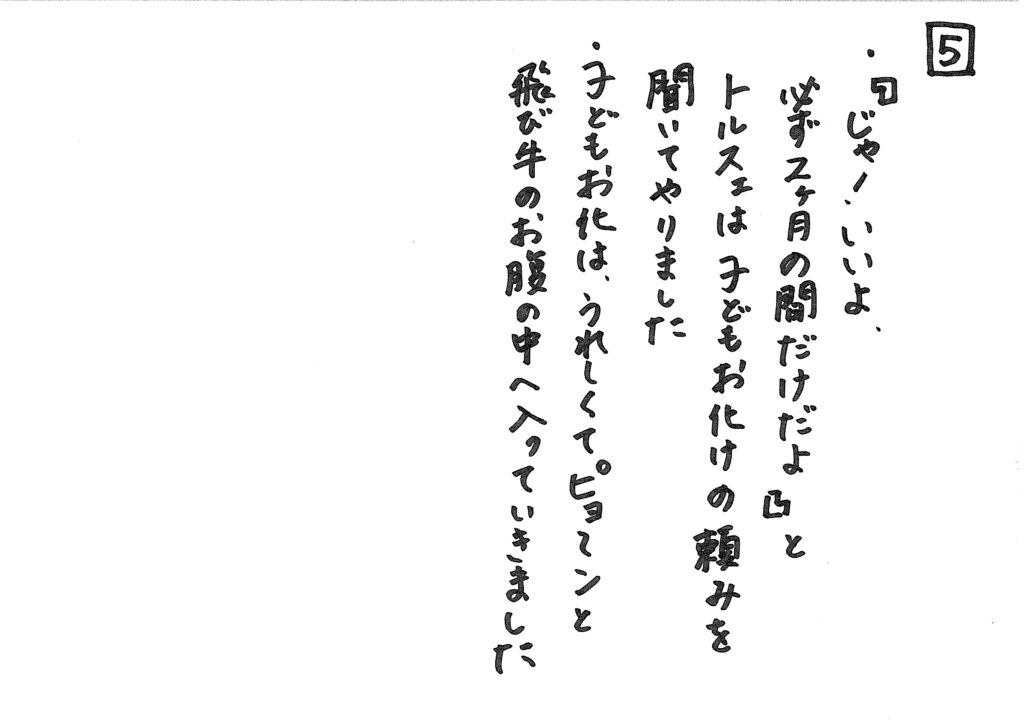 5
・『じゃ！いいよ、
必ず2ヶ月の間だけだよ』と
トルスェは子どもお化けの頼みを
聞いてやりました
・子どもお化は、うれしくてピョてンと
飛び牛のお腹の中へ入っていきました